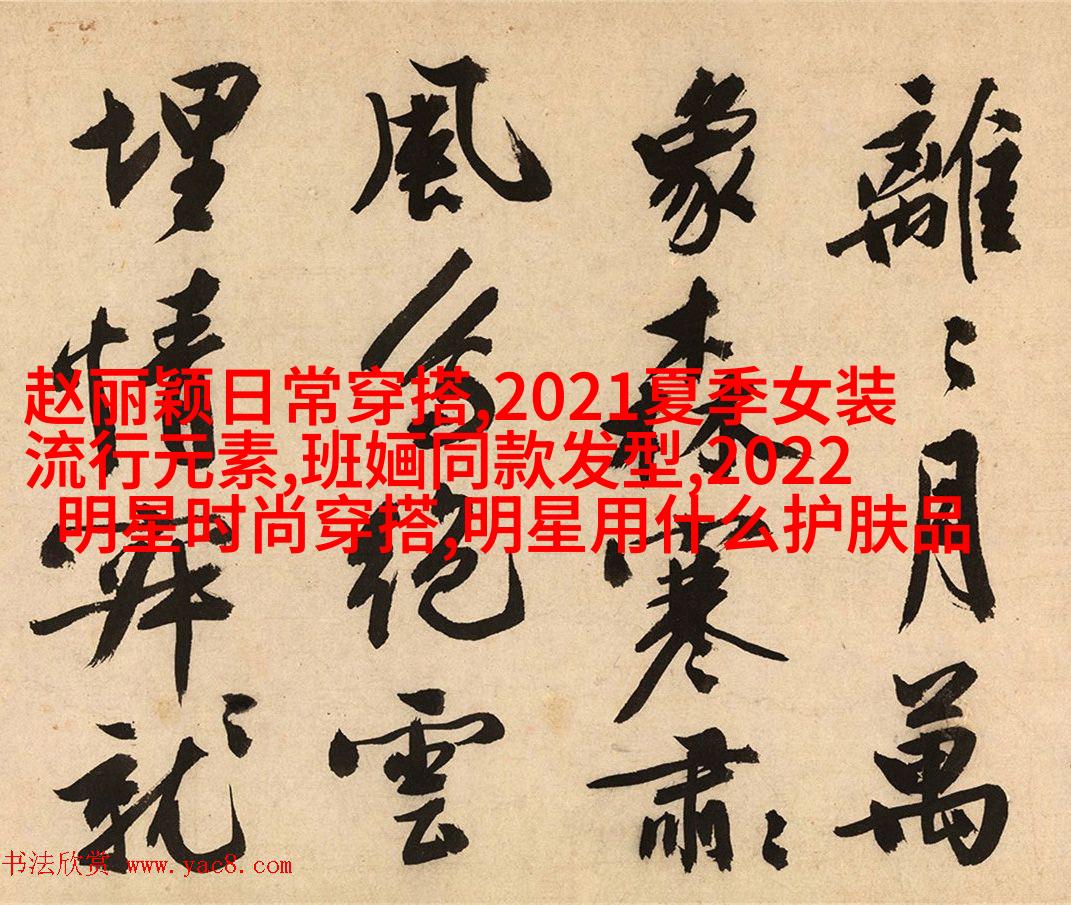 離〻月萬
象森寒肅〻
風色絕雲
埋情就〻
赵丽颖日常穿搭,2021夏季女装
流行元素,班婳同款发型,2022
明星时尚穿搭,明星用什么护肤品
书法欣赏 www.yac8.com